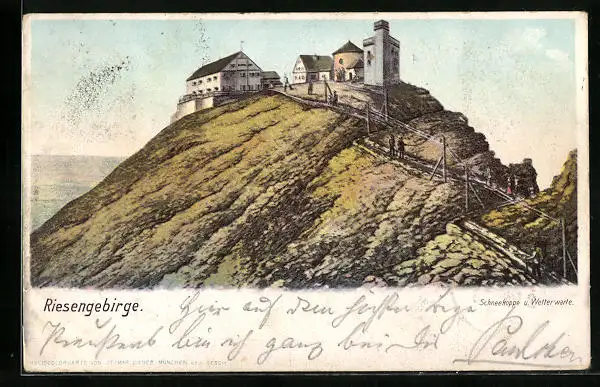 Riesengebirge.
Schneekoppe u. Wetterwarte.
Hier auf dem höchsten Berge
Preußens bin ich ganz bei Dir